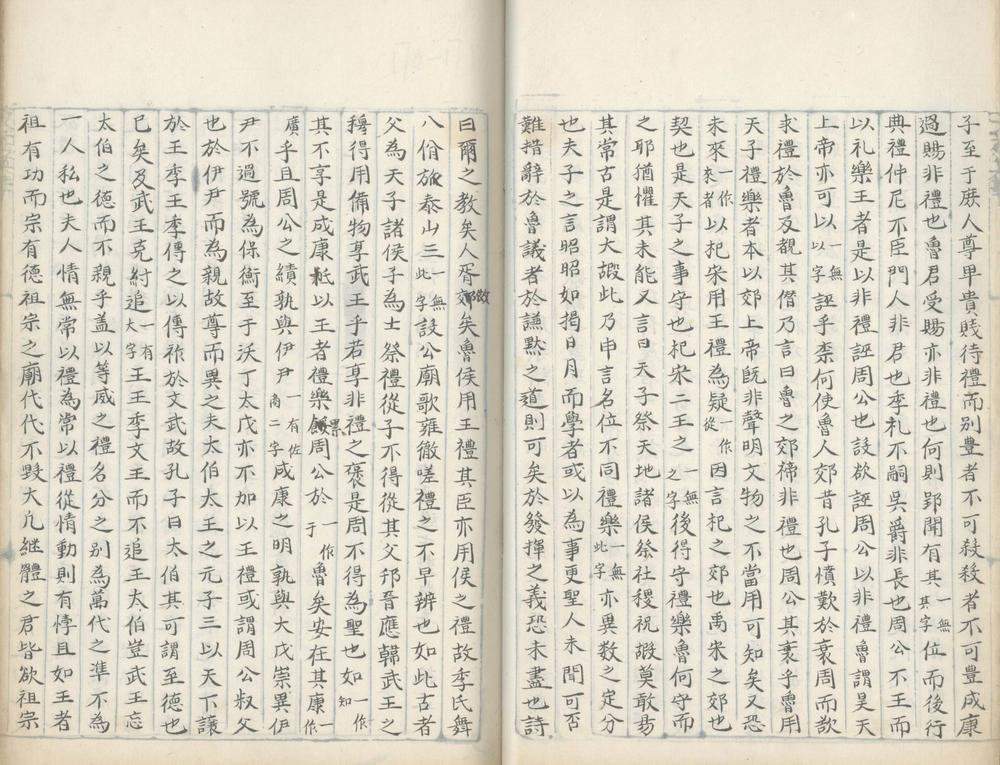 子至于庶人尊卑貴賤待禮而別豊者不可殺殺者不可豊成康
過賜非禮也魯君受賜亦非禮也何則郢聞有其一無其字位而後行
典禮仲尼不臣門人非君也季札不嗣吳爵非長也周公不王而
以礼樂王者是以非禮誣周公也設欲誣周公以非禮魯謂昊天
上帝亦可以一無以字誣乎柰何使魯人郊昔孔子憤歎於衰周而欲
求禮於魯及覩其僭乃言曰魯之郊禘非禮也周公其衰乎魯用
天子禮樂者本以郊上帝旣非聲明文物之不當用可知矣又恐
未來一作來者以杞宋用王禮為疑一作從因言杞之郊也禹宋之郊也
契也是天子之事守也杞宋二王之一無之字後得守禮樂魯何守而
之耶猶懼其未能又言曰天子祭天地諸侯祭社稷祝嘏莫敢昜
其常古是謂大嘏此乃申言名位不同禮樂一無此字亦異数之定分
也夫子之言昭昭如揭日月而學者或以為事更聖人未聞可否
難措辭於魯議者於謙默之道則可矣於發揮之義恐未盡也詩
曰爾之教矣人胥效矣魯侯用王禮其臣亦用侯之禮故季氏舞
八佾旅泰山三一無此字設公廟歌雍徹嗟禮之不早辨也如此古者
父為天子諸侯子為士祭禮從子不得從其父邘晉應韓武王之
穆得用備物享武王乎若享非禮之褒是周不得為聖也如一作知
其不享是成康秖以王者禮樂饗周公於一作于魯矣安在其康一作
廣乎且周公之績孰與伊尹一有佐商二字成康之明孰與大戊崇異伊
尹不過號為保衡至于沃丁太戊亦不加以王禮或謂周公叔父
也於伊尹而為親故尊而異之夫太伯太王之元子三以天下讓
於王季王季傳之以傳祚於文武故孔子曰太伯其可謂至德也
已矣及武王克紂追一有大字王王季文王而不追王太伯豈武王忘
太伯之德而不親乎盖以等威之禮名分之别為萬代之準不為
一人私也夫人情無常以禮為常以禮從情動則有悖且如王者
祖有功而宗有德祖宗之廟代代不毀大凡継體之君皆欲祖宗